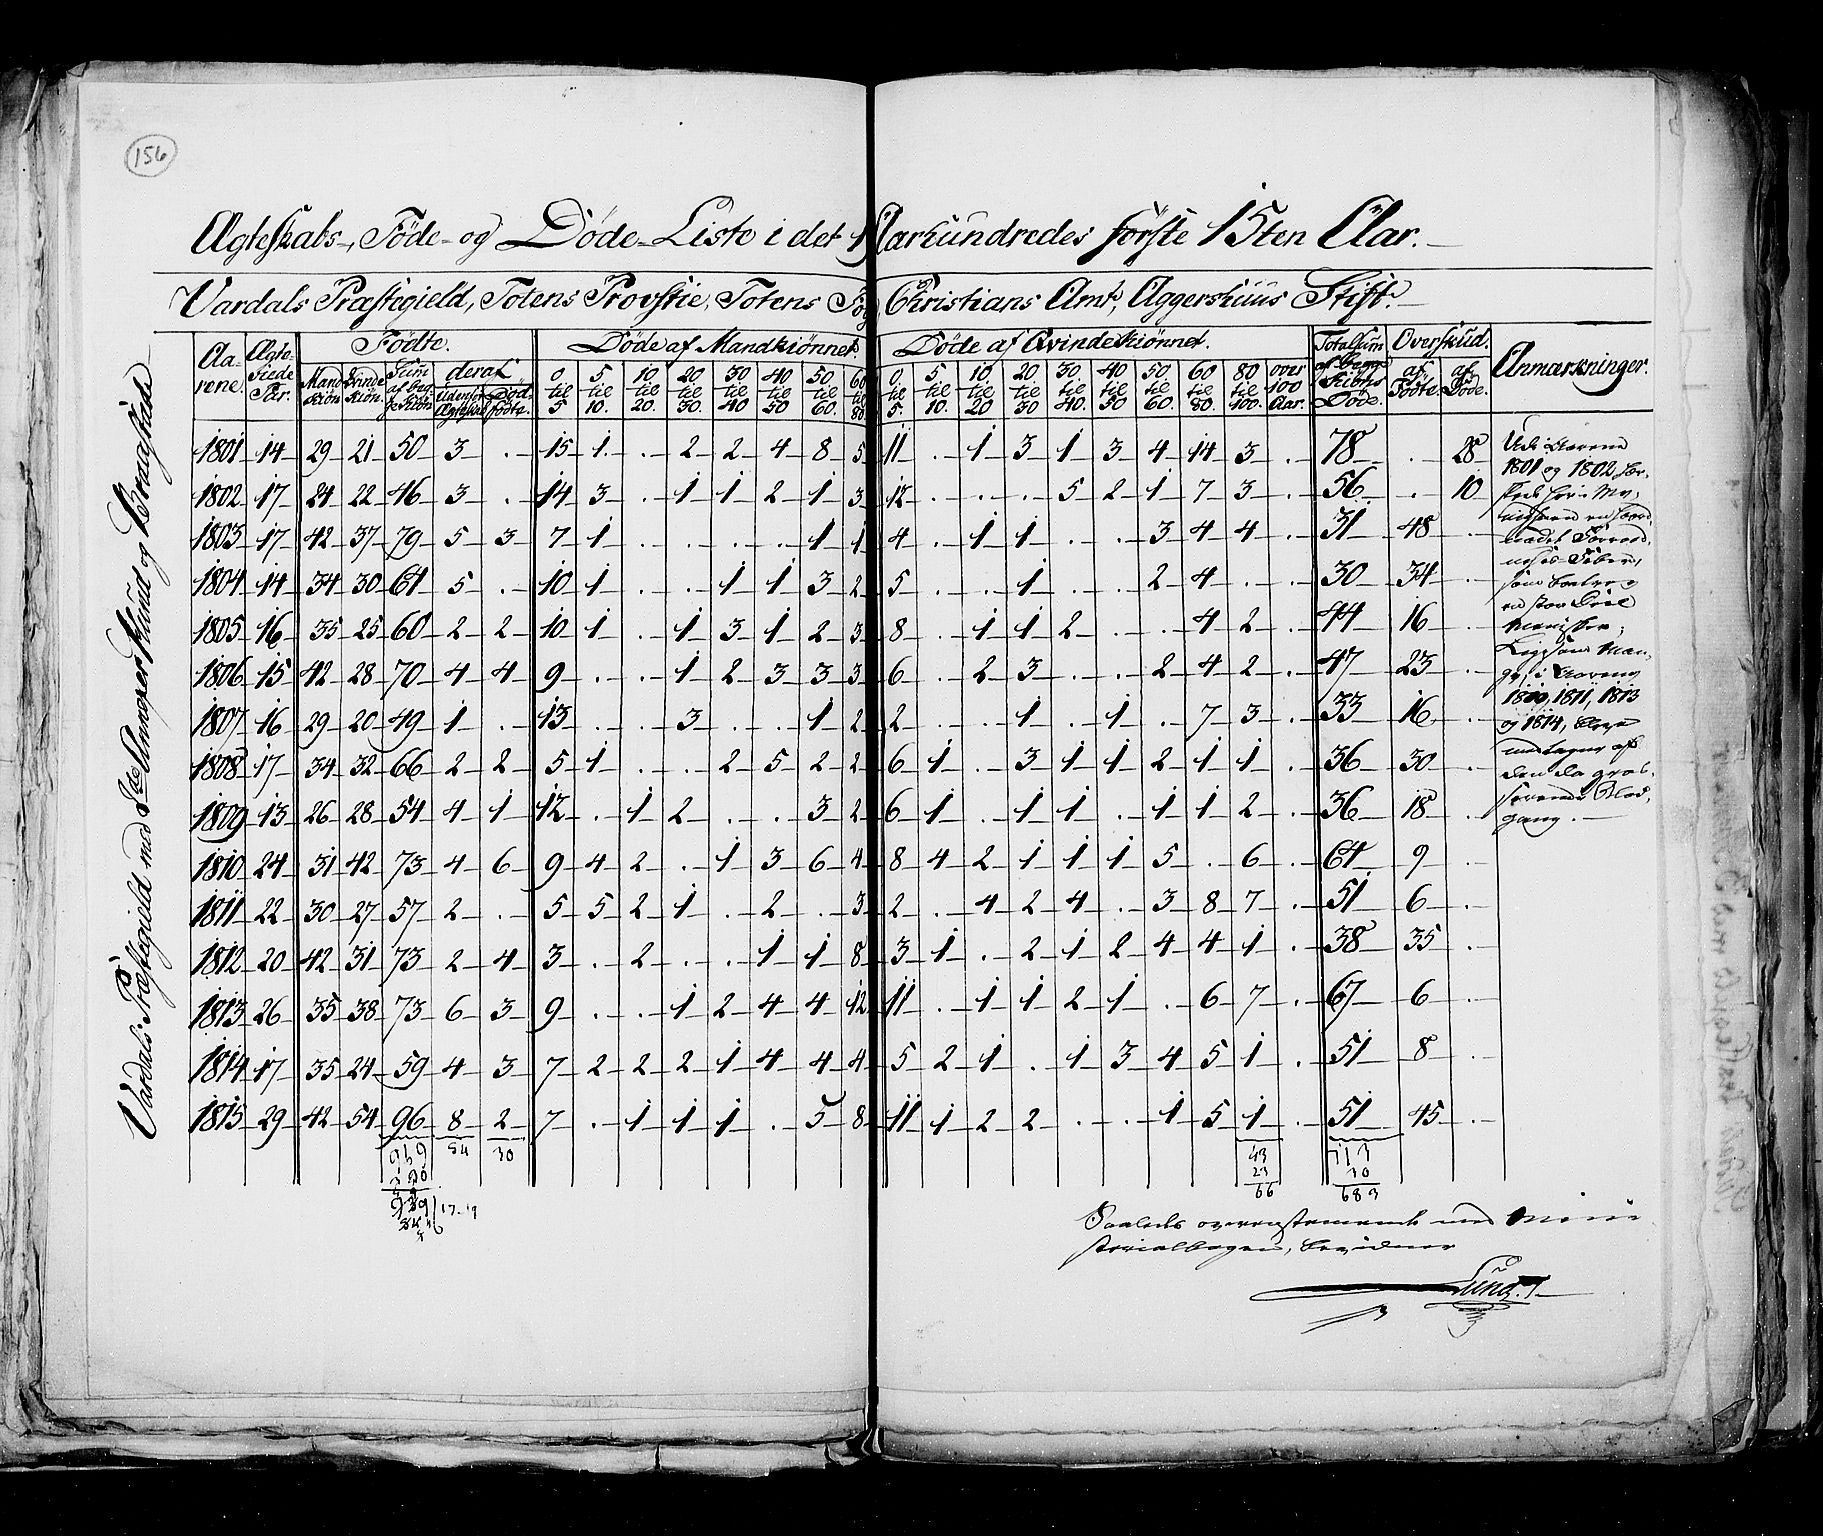 156
Ægteskabs-, Föde- og Döde-Liste i det 19 Aarhundredes förste 15ten Aar.
Vardals Præstegield, Totens Provstie, Totens Fog Christians Amt, Aggershuus Stift.
Aarene. Ægteviede Par. Födte. Döde af Mandkiönnet. Döde af Qvindekiönnet. Totalsum af begge Kiöns Döde. Overskud. Anmærkninger.
Mand Kiön Qvinde Kiön. Sum af begge Kiön deraf Udenfor Ægteskab Död födte. 0 til 5 5 til 10. 10 til 20. 20 til 30. 30 til 40 40 til 50 50 til 60. 60 til 80 0 til 5. 5 til 10. 10 til 20 20 til 30 30 til 40. 40 til 50 50 til 60. 60 til 80. 80 til 100. over 100 Aar. af Födte. af Döde.
1801 14 29 21 50 3 . 15 1 . 2 2 4 8 5 11 . 1 3 1 3 4 14 3 . 78 . 28
1802 17 24 22 46 3 . 14 3 . 1 1 2 1 3 12 . . . 5 2 1 7 3 . 56 . 10
1803 17 42 37 79 5 3 7 1 . . . . 1 1 4 . 1 1 . . 3 4 4 . 31 48 .
1804 14 34 30 64 5 . 10 1 . . 1 1 3 2 5 . . 1 . . 2 4 . . 30 34 .
1805 16 35 25 60 2 2 10 1 . 1 3 1 2 3 8 . 1 1 2 . . 4 2 . 44 16 .
1806 15 42 28 70 4 4 9 . . 1 2 3 3 3 6 . 2 3 . . 2 4 2 . 47 23 .
1807 16 29 20 49 1 . 13 . . 3 . . 1 2 2 . . 1 . 1 . 7 3 . 33 16 .
1808 17 34 32 66 2 2 5 1 . . 2 5 2 2 6 1 . 3 1 1 2 1 1 . 36 30 .
1809 13 26 28 54 4 1 12 . 1 2 . . 3 2 6 1 . 1 1 . 1 1 2 . 36 18 .
1810 24 31 42 73 4 6 9 4 2 . 1 3 6 4 8 4 2 1 1 1 5 . 6 . 64 9 .
1811 22 30 27 57 2 . 5 5 2 1 . 2 . 3 2 . 4 2 4 . 3 8 7 . 51 6 .
1812 20 42 31 73 2 4 3 . 2 . . 1 1 8 3 1 . 2 1 2 4 4 1 . 38 35 .
1813 26 35 38 73 6 3 9 . . 1 2 4 4 12 11 . 1 1 2 1 . 6 7 . 67 6 .
1814 17 35 24 59 4 3 7 2 2 2 1 4 4 4 5 2 1 . 1 3 4 5 1 . 51 8 .
1815 29 42 54 96 8 2 7 . 1 1 1 . 5 8 11 1 2 2 . . 1 5 1 . 51 45 .
54 30 43 713
23 30
66 683
1801 og 1802
1810, 1811, 1813
og 1814,
gang.
Vardals Præstegield med Sognene Hund og Braastad
Saaledes overensstemmende med Mini
sterialbogen, bevidner
Lund.